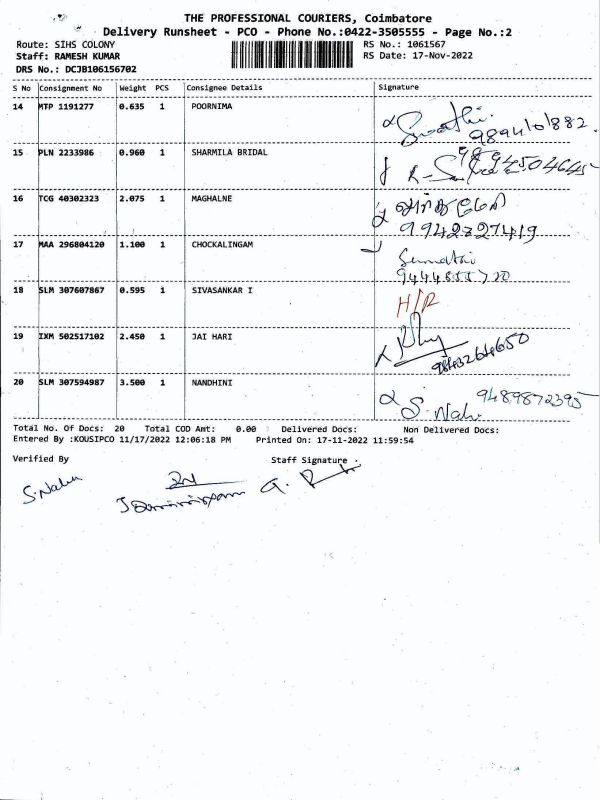 THE PROFESSIONAL COURIERS, Coimbatore
Delivery Runsheet - PCO - Phone No.:0422-3505555 - Page No.:2
Route: SIHS COLONY
RS No.: 1061567
Staff: RAMESH KUMAR
RS Date: 17-Nov-2022
DRS No.: DCJB106156702
S No Consignment No Weight PCS Consignee Details Signature
14 MTP 1191277 0.635 1 POORNIMA
15 PLN 2233986 0.960 1 SHARMILA BRIDAL
16 TCG 40302323 2.075 1 MAGHALNE
9942727419
17 MAA 296804120 1.100 1 CHOCKALINGAM
Sumathi
9444855720
18 SLM 307607867 0.595 1 SIVASANKAR I
H/R
19 IXM 502517102 2.450 1 JAI HARI
9843264650
20 SLM 307594987 3.500 1 NANDHINI
9489872395
Total No. Of Docs: 20 Total COD Amt: 0.00 Delivered Docs: Non Delivered Docs:
Entered By :KOUSIPCO 11/17/2022 12:06:18 PM Printed On: 17-11-2022 11:59:54
Verified By Staff Signature